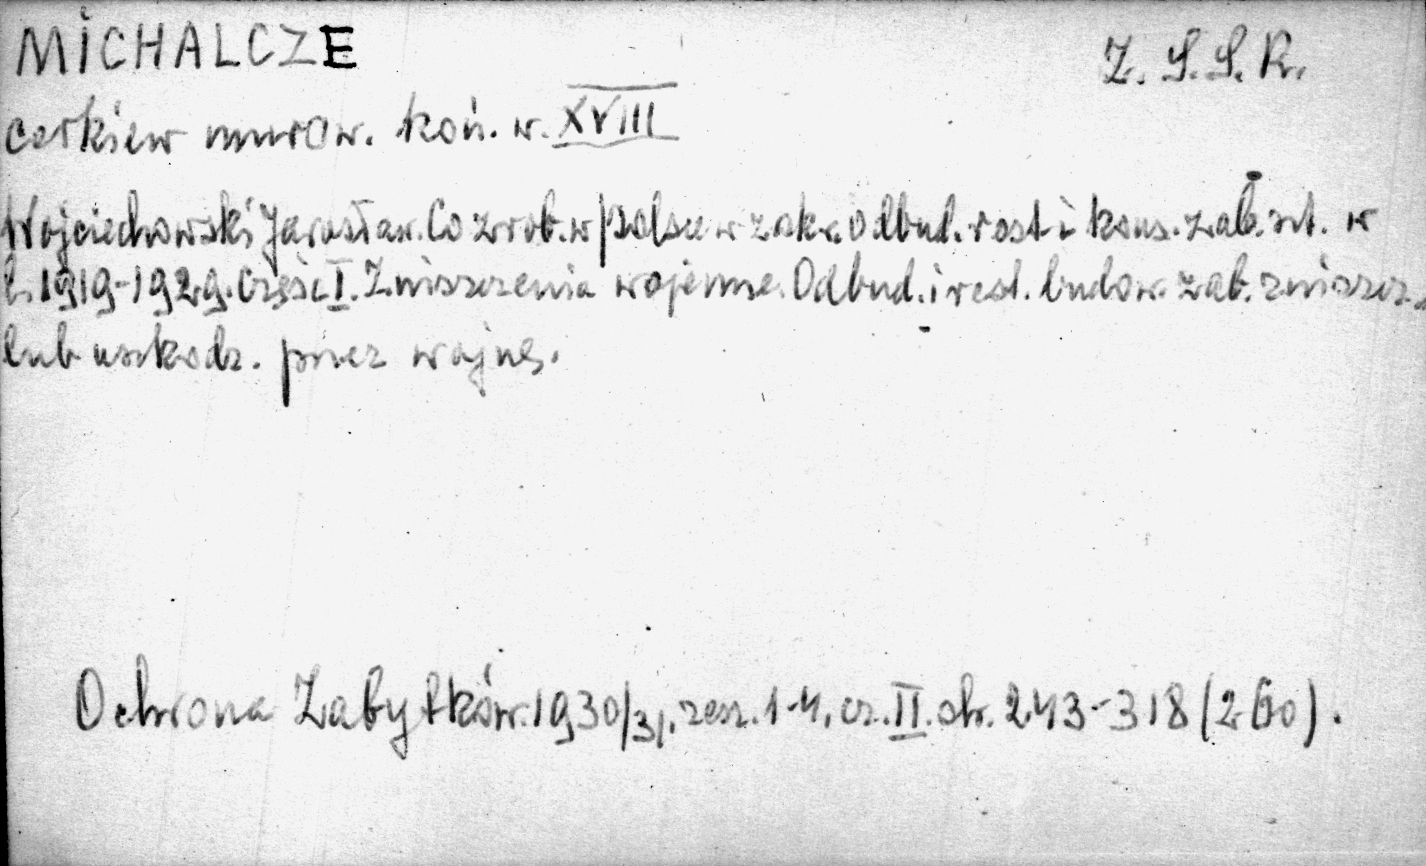 MICHALCZE Z.S.S.R.
cerkiew murow. koń. w. XVIII
Wojciechowski Jarosław. Co zrob. w Polsce w zakr. odbud. rest i kons. zab. szt. w
l. 1919-1929. Część I. Zniszczenia wojenne. Odbud. i rest. budow. zab. zniszcz.
lub uszkodz. przez wojnę.
Ochrona Zabytków. 1930/31. zesz. 1-4. cz. II. str. 243-318 (260).